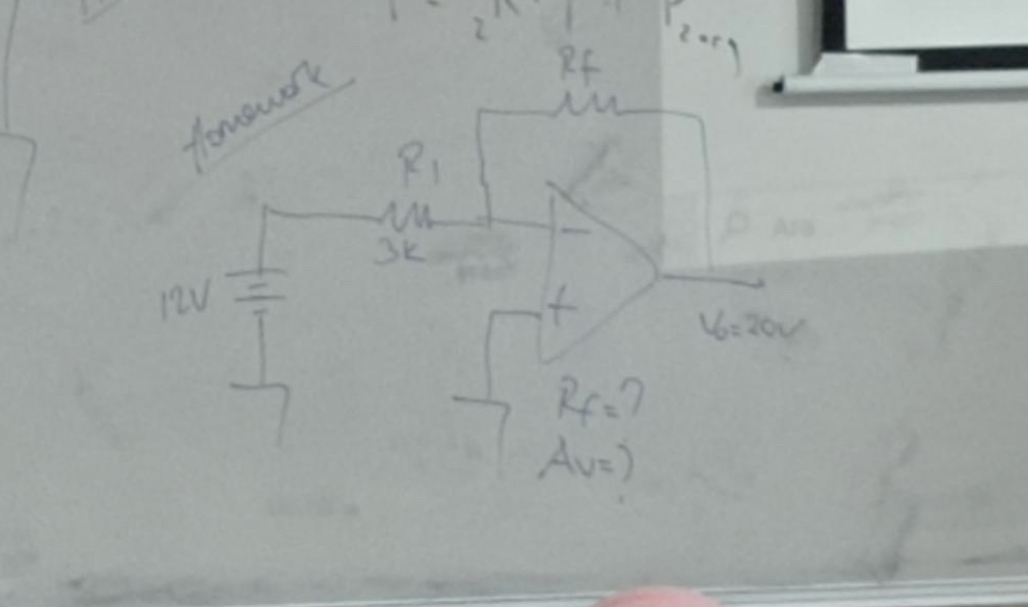 Homework
Rf
R1
3K
12V
−
+
Vo=20v
Rf=?
Av=?